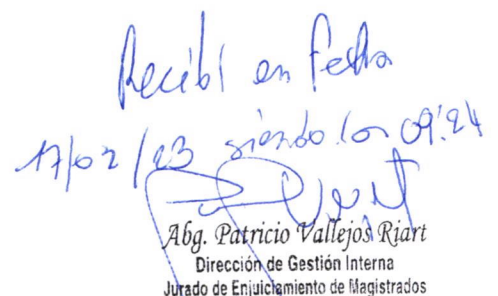 Recibí en fecha
17/02/23 siendo las 09:24
Abg. Patricio Vallejos Riart
Dirección de Gestión Interna
Jurado de Enjuiciamiento de Magistrados